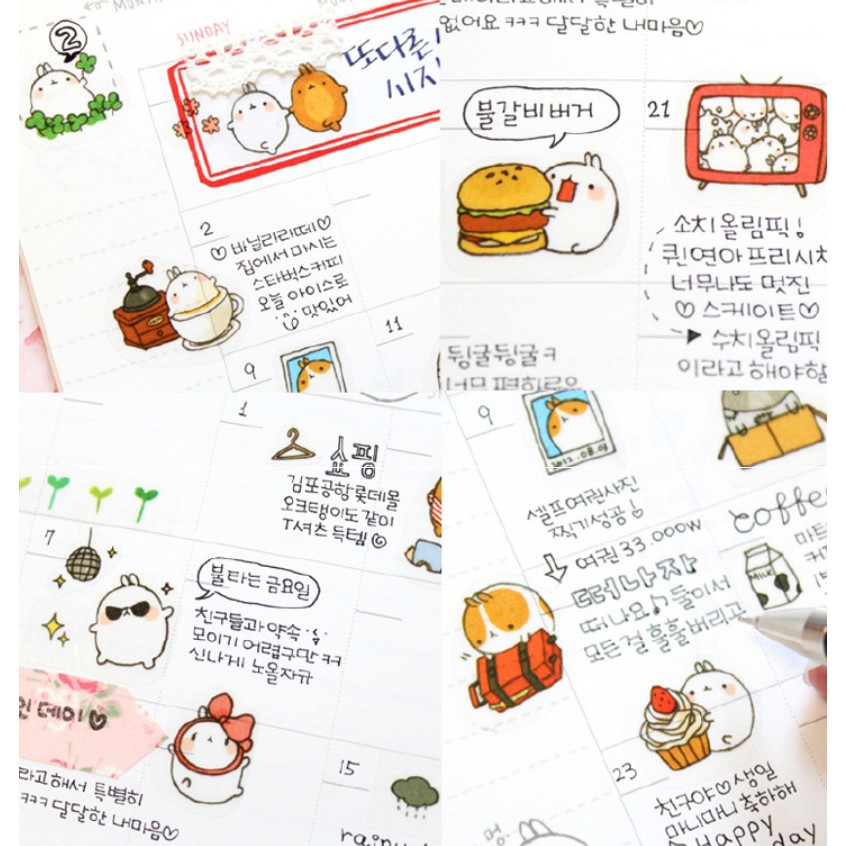 2
SUNDAY
또다른
시진
2
♡ 바닐라라떼♡
집에서 마시는
스타벅스커피
오늘 아이스로
맛있어
11
9
없어요 ㅋㅋㅋ 달달한 내마음♡
불갈비버거
21
소치 올림픽!
퀸연아 프리시
너무나도 멋진
♡ 스케이트♡
▶ 수치올림픽
이라고 해야할
뒹굴뒹굴ㅋ
너무 편하로운
1
쇼핑
김포공항롯데몰
오크탱이도 같이
T셔츠 득템
7
불타는 금요일
친구들과 약속
모이기 어렵구만 ㅋㅋ
신나게 노올자규
인 데이♡
라고해서 특별히
ㅋㅋㅋ 달달한 내마음♡
15
9
2012.08.03
셀프여권사진
찍기성공!
여권33.000W
떠나자
떠나요♪ 둘이서
모든걸 훌훌버리고
coffee
마트
MILK
23
친구야♡ 생일
마니마니 축하해
Happy
day
멍.